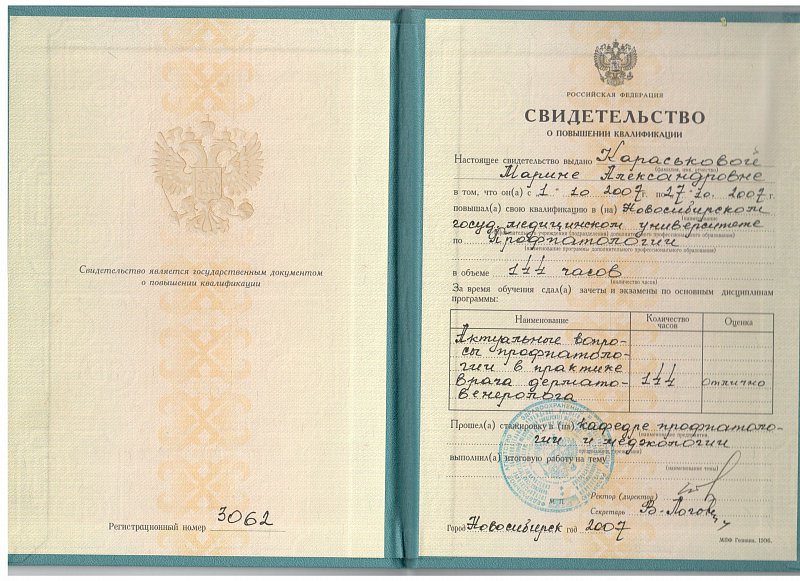 Свидетельство является государственным документом
о повышении квалификации
Регистрационный номер 3062
РОССИЙСКАЯ ФЕДЕРАЦИЯ
СВИДЕТЕЛЬСТВО
О ПОВЫШЕНИИ КВАЛИФИКАЦИИ
Настоящее свидетельство выдано Караськовой
(фамилия, имя, отчество)
Марине Александровне
в том, что он(а) с 1 10 2007 г. по 27 10. 2007 г.
повышал(а) свою квалификацию в (на) Новосибирском
(наименование
госуд. медицинском университете
образовательного учреждения (подразделения) дополнительного профессионального образования)
по Профпатологии
(наименование программы дополнительного профессионального образования)
в объеме 144 часов
(количество часов)
За время обучения сдал(а) зачеты и экзамены по основным дисциплинам
программы:
Наименование Количество часов Оценка
Актуальные вопро-
сы профпатоло-
гии в практике
врача дермато- 144 отлично
венеролога
Прошел(а) стажировку в (на) кафедре профпатоло-
(наименование предприятия,
гии и медэкологии
организации, учреждения)
выполнил(а) итоговую работу на тему
(наименование темы)
М. П.
Ректор (директор)
Секретарь
Город Новосибирск год 2007
МПФ Гознака. 1996.